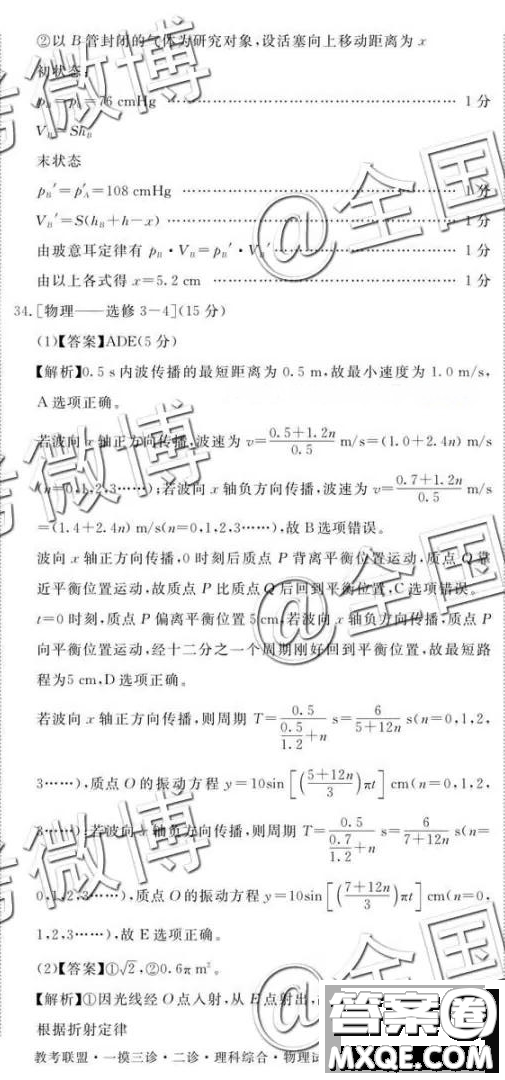 ②以 B 管封闭的气体为研究对象,设活塞向上移动距离为 x
初状态:
p_B=p_1=76 cmHg …… 1 分
V_B=Sh_B
末状态
p_B′=p_A′=108 cmHg …… 1 分
V_B′=S(h_B+h−x) …… 1 分
由玻意耳定律有 p_B·V_B=p_B′·V_B′ …… 1 分
由以上各式得 x=5.2 cm …… 1 分
34.[物理——选修 3−4](15 分)
(1)【答案】ADE(5 分)
【解析】0.5 s 内波传播的最短距离为 0.5 m,故最小速度为 1.0 m/s,
A 选项正确。
若波向 x 轴正方向传播,波速为 v=(0.5+1.2n)/0.5 m/s=(1.0+2.4n) m/s
(n=0,1,2,3……);若波向 x 轴负方向传播,波速为 v=(0.7+1.2n)/0.5 m/s
=(1.4+2.4n) m/s(n=0,1,2,3……),故 B 选项错误。
波向 x 轴正方向传播,0 时刻后质点 P 背离平衡位置运动,质点 Q 靠
近平衡位置运动,故质点 P 比质点 Q 后回到平衡位置,C 选项错误。
t=0 时刻,质点 P 偏离平衡位置 5 cm,若波向 x 轴负方向传播,质点 P
向平衡位置运动,经十二分之一个周期刚好回到平衡位置,故最短路
程为5 cm,D 选项正确。
若波向 x 轴正方向传播,则周期 T=0.5/(0.5/1.2+n) s=6/(5+12n) s(n=0,1,2,
3……),质点 O 的振动方程 y=10sin[((5+12n)/3)πt] cm(n=0,1,2,
3……);若波向 x 轴负方向传播,则周期 T=0.5/(0.7/1.2+n) s=6/(7+12n) s(n=
0,1,2,3……),质点 O 的振动方程 y=10sin[((7+12n)/3)πt] cm(n=0,
1,2,3……),故 E 选项正确。
(2)【答案】①√2,②0.6π m²。
【解析】①因光线经 O 点入射,从 E 点射出,
根据折射定律
教考联盟·一摸三诊·二诊·理科综合·物理试
考微博
@全国
考微博
@全国
考微博
@全国
答案圈
MXQE.COM